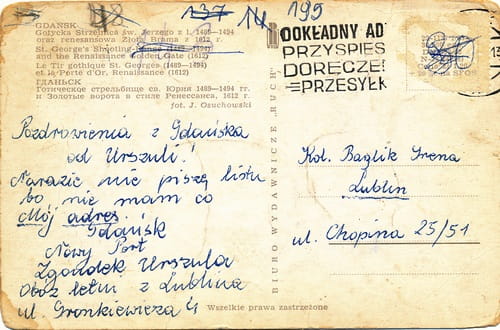 137 14 195
GDAŃSK
Gotycka Strzelnica św. Jerzego z l. 1489—1494
oraz renesansowa Złota Brama z 1612 r.
St. George's Shooting-Range (1489—1494)
and the Renaissance Golden Gate (1612)
Le Tir gothique St. Georges (1489—1494)
et la Porte d'Or, Renaissance (1612)
ГДАНЬСК
Готическое стрельбище св. Юрия 1489—1494 гг.
и Золотые ворота в стиле Ренессанса, 1612 г.
fot. J. Osuchowski
DOKŁADNY AD
PRZYSPIES
DORĘCZE
PRZESYŁK
Pozdrowienia z Gdańska
od Urszuli!
Narazie nie piszę listu
bo nie mam co
Mój adres.
Gdańsk
Nowy Port
Zgondek Urszula
Obóz letni z Lublina
ul.
BIURO WYDAWNICZE „RUCH"
Kol. Baglik Irena
Lublin
ul. Chopina 25/51
Wszelkie prawa zastrzeżone